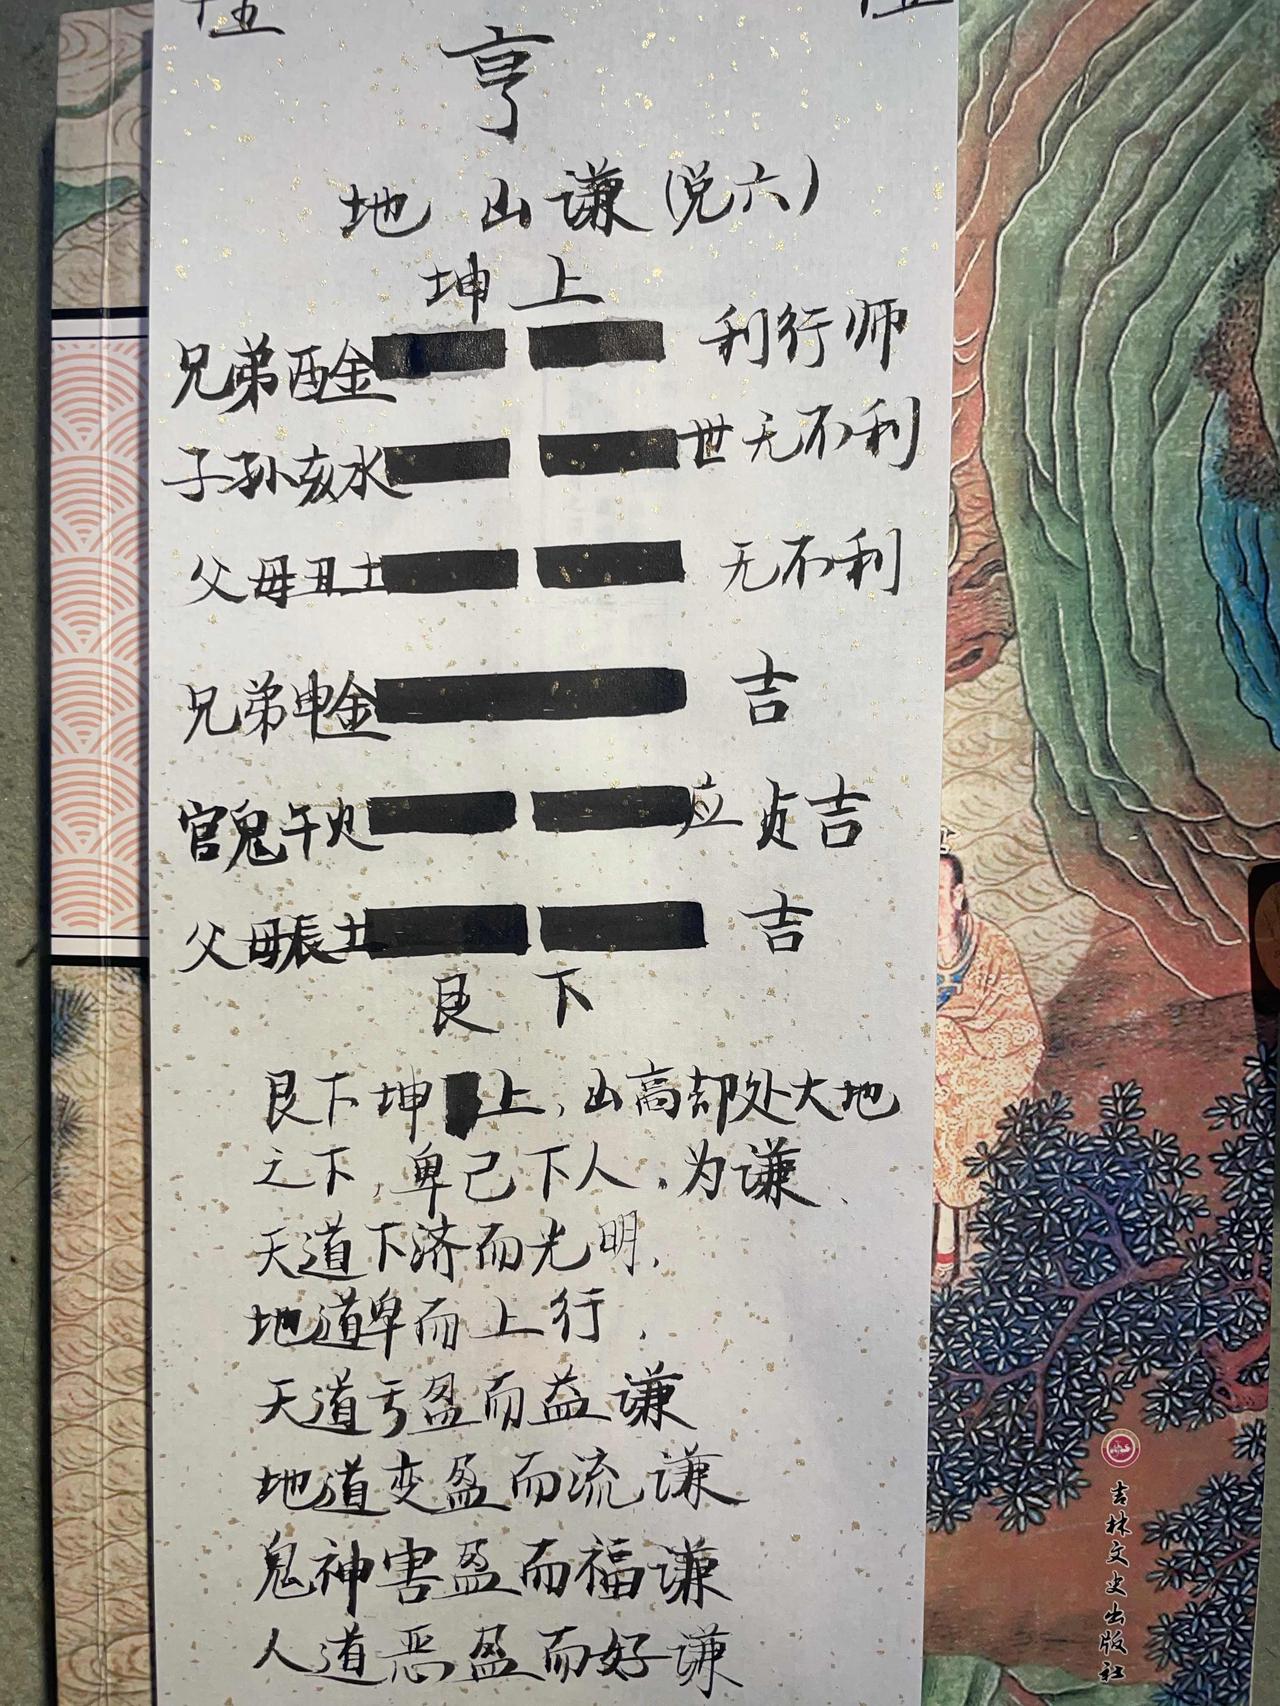 亨
地山谦(兑六)
坤上
兄弟酉金 利行师
子孙亥水 世无不利
父母丑土 无不利
兄弟申金 吉
官鬼午火 应 贞吉
父母辰土 吉
艮下
艮下坤上,山高却处大地
之下,卑己下人,为谦、
天道下济而光明,
地道卑而上行,
天道亏盈而益谦
地道变盈而流谦
鬼神害盈而福谦
人道恶盈而好谦
吉林文史出版社